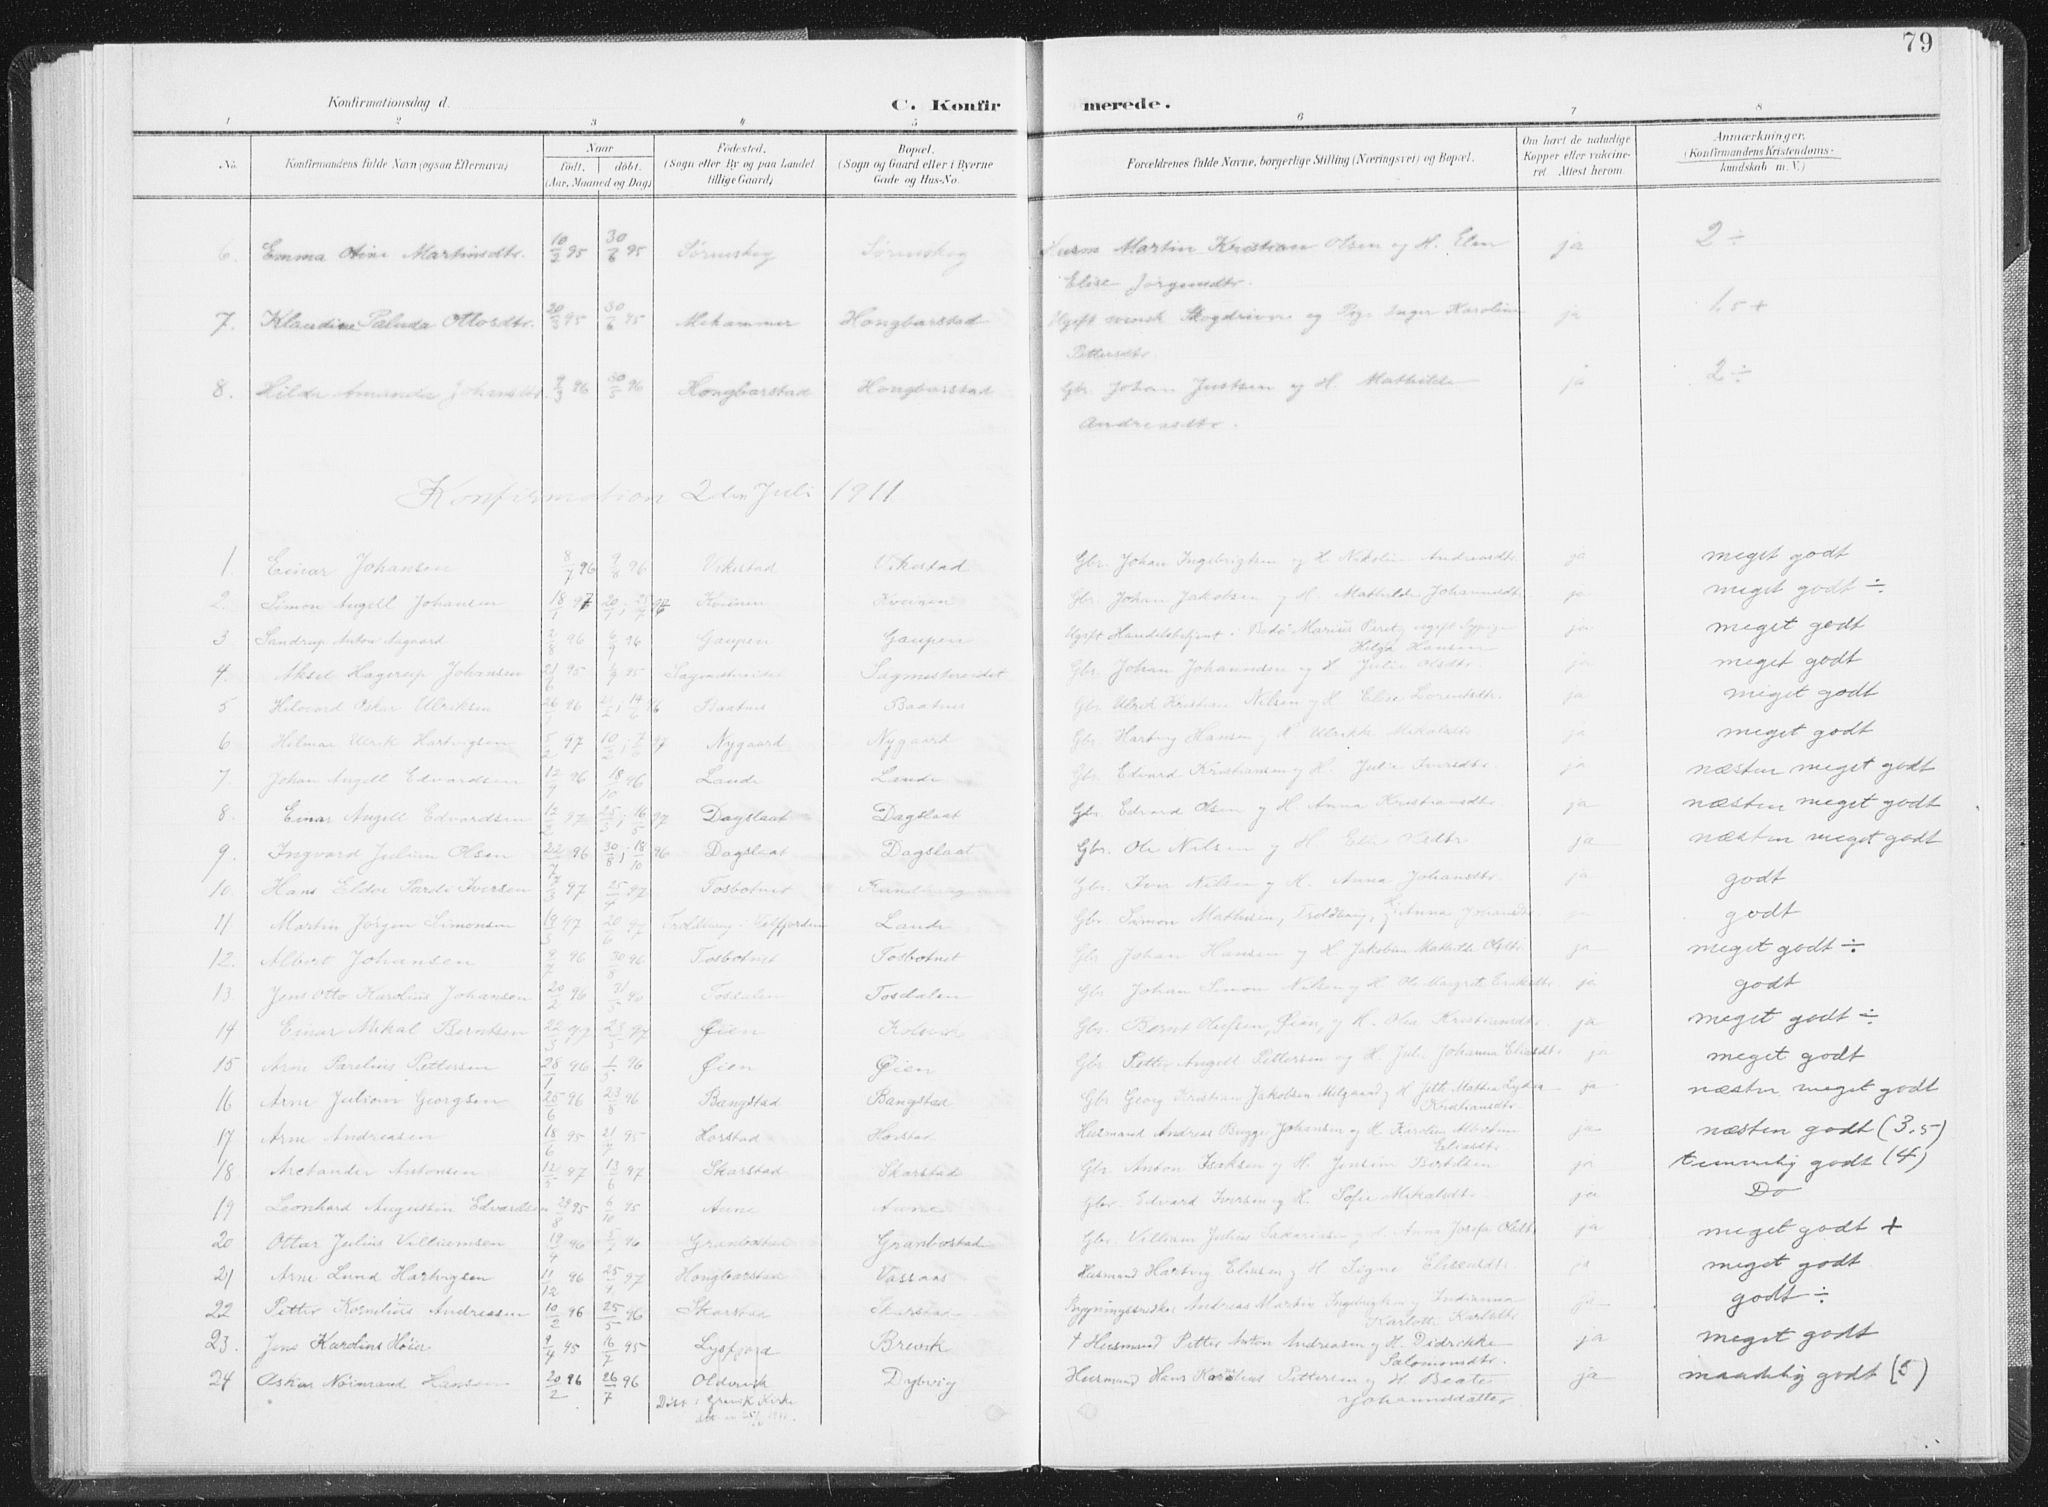 79
Konfirmationsdag d.
C. Konfirmerede.
1 2 3 4 5 6 7 8
No. Konfirmandens fulde Navn (ogsaa Efternavn) Naar født, døbt. (Aar, Maaned og Dag) Fødested, (Sogn eller By og paa Landet tillige Gaard) Bopæl. (Sogn og Gaard eller i Byerne Gade og Hus-No. Forældrenes fulde Navne, borgerlige Stilling (Næringsvei) og Bopæl. Om havt de naturlige Kopper eller vakcineret. Attest herom. Anmærkninger. (Konfirmandens Kristendomskundskab m. V.)
6. Emma Oline Martinsdtr. 10/2 95 30/6 95 Sørenskog Sørenskog Husm Martin Kristian Olsen og H. Elen ja 2 ÷
Elise Jørgensdtr.
7. Klaudine Paluda Ottosdtr. 20/3 95 30/6 95 Mehammer Hongbarstad Ugift svensk Skogdriver og Pige Inger Karoline ja 1,5 +
Pettersdtr.
8. Hilda Amanda Johansdtr. 9/3 96 30/5 96 Hongbarstad Hongbarstad Gbr. Johan Justsen og H. Mathilde ja 2 ÷
Andreasdtr.
Konfirmation 2den Juli 1911
1. Einar Johansen 8/7 96 9/8 96 Vikestad Vikestad Gbr. Johan Ingebrigtsen og H. Nikoline Andreasdtr. ja meget godt
2. Simon Angell Johansen 18/1 97 Kveinen Kveinen Gbr. Johan Jakobsen og H. Mathilde Johannesdtr ja meget godt ÷
3 Sandrup Anton Aagaard 2/8 96 6/9 96 Gaupen Gaupen Ugift Handelsbetjent i Bodø Marius Peretz ugift Sypige ja meget godt
Helga Hansen
4. Aksel Hagerup Johansen 21/6 95 1/9 95 Sagmestereidet Sagmestereidet Gbr. Johan Johannesen og H Julie Olsdtr. ja meget godt
5 Helvard Oskar Ulriksen 26/1 96 Baatnes Baatnes Gbr. Ulrik Kristian Nilsen og H Elise Lorentsdtr. ja meget godt
6 Hilmar Ulrik Hartvigsen 5/2 97 Nygaard Nygaard Gbr. Hartvig Hansen og H Ulrikke Mikalsdtr ja meget godt
7. Johan Angell Edvardsen 12/9 96 18/10 96 Lande Lande Gbr. Edvard Kristiansen og H. Julie Iversdtr. ja næsten meget godt
8. Einar Angell Edvardsen 12/2 97 Dagslaat Dagslaat Gbr. Edvard Olsen og H. Anna Kristiansdtr. ja næsten meget godt
9. Ingvard Julius Olsen 22/7 96 30/8; 18/10 96 Dagslaat Dagslaat Gbr. Ole Nilsen og H. ja næsten meget godt
10. Hans Eldor Pardi Iversen 97 25/4 97 Tosbotnet Gbr. Iver Nilsen og H. Anna Johansdtr. ja godt
11 Martin Jørgen Simonsen 19/3 97 20/6 97 Lande Gbr. Simon Mathisen, Troldvaag, Anna Johansdtr. godt
12. Albert Johansen 9/7 96 30/8 96 Tosbotnet Tosbotnet Gbr Johan Hansen og H Jakobine Olsdtr ja meget godt ÷
13. Jens Otto Karolius Johansen 20/2 96 Tosdalen Tosdalen Gbr Johan Simon Nilsen og H Ole Margret Eriksdtr ja godt
14 Einar Mikal Berntsen 22/3 97 23/5 97 Øien Kolsvik Gbr. Bernt Olufsen, Øien, og H. Olea Kristiansdtr. ja meget godt ÷
15 Arne Parelius Pettersen 28/1 96 1/5 96 Øien Øien Gbr. Petter Angell Pettersen og H. Julie Johanna Eliasdtr ja meget godt
16 Arne Julian Georgsen 25/6 96 23/8 96 Bangstad Bangstad Gbr. Georg Kristian Jakobsen og H Jett Mathea ja næsten meget godt
Kristiansdtr
17 Arne Andreasen 18/6 95 21/7 95 Horstad Horstad Husmand Andreas Johansen og H. Karoline Albertine ja næsten godt (3,5)
Eliasdtr
18 Arctander Antonsen 12/3 97 13/6 97 Skarstad Skarstad Gbr. Anton Isaksen og H. Jensine Bertelsen ja temmelig godt (4)
19 Leonhard Augustin Edvardsen 29/8 95 6/10 95 Aune Aune Gbr. Edvard Iversen og H. Sofie Mikalsdtr ja Do
20 Ottar Julius Villiumsen 19/4 96 5/7 96 Granbostad Granbostad Gbr. Villiam Julius Sakariasen og H Anna Josefa Olsdtr. ja meget godt +
21 Arne Lund Hartvigsen 11/12 96 25/4 97 Hongbarstad Vassaas Husmand Hartvig Eliasen og H Signe Eliseusdtr ja meget godt
22 Petter Kornelius Andreasen 10/2 96 25/5 96 Skarstad Skarstad Andreas Martin Ingebrigtsen og Indianna ja godt ÷
Karlotte Karlsdtr
23. Jens Karolius Høier 9/4 95 16/7 95 Lysfjord Brevik † Husmand Petter Anton Andreasen og H. Didrikke ja meget godt
Salomonsdtr.
24 Oskar Normand Hansen 20/2 96 26/7 96 Oldervik Dybvig Husmand Hans Karolius Pettersen og H Beate ja maadelig godt (5)
Kirke Johannesdatter